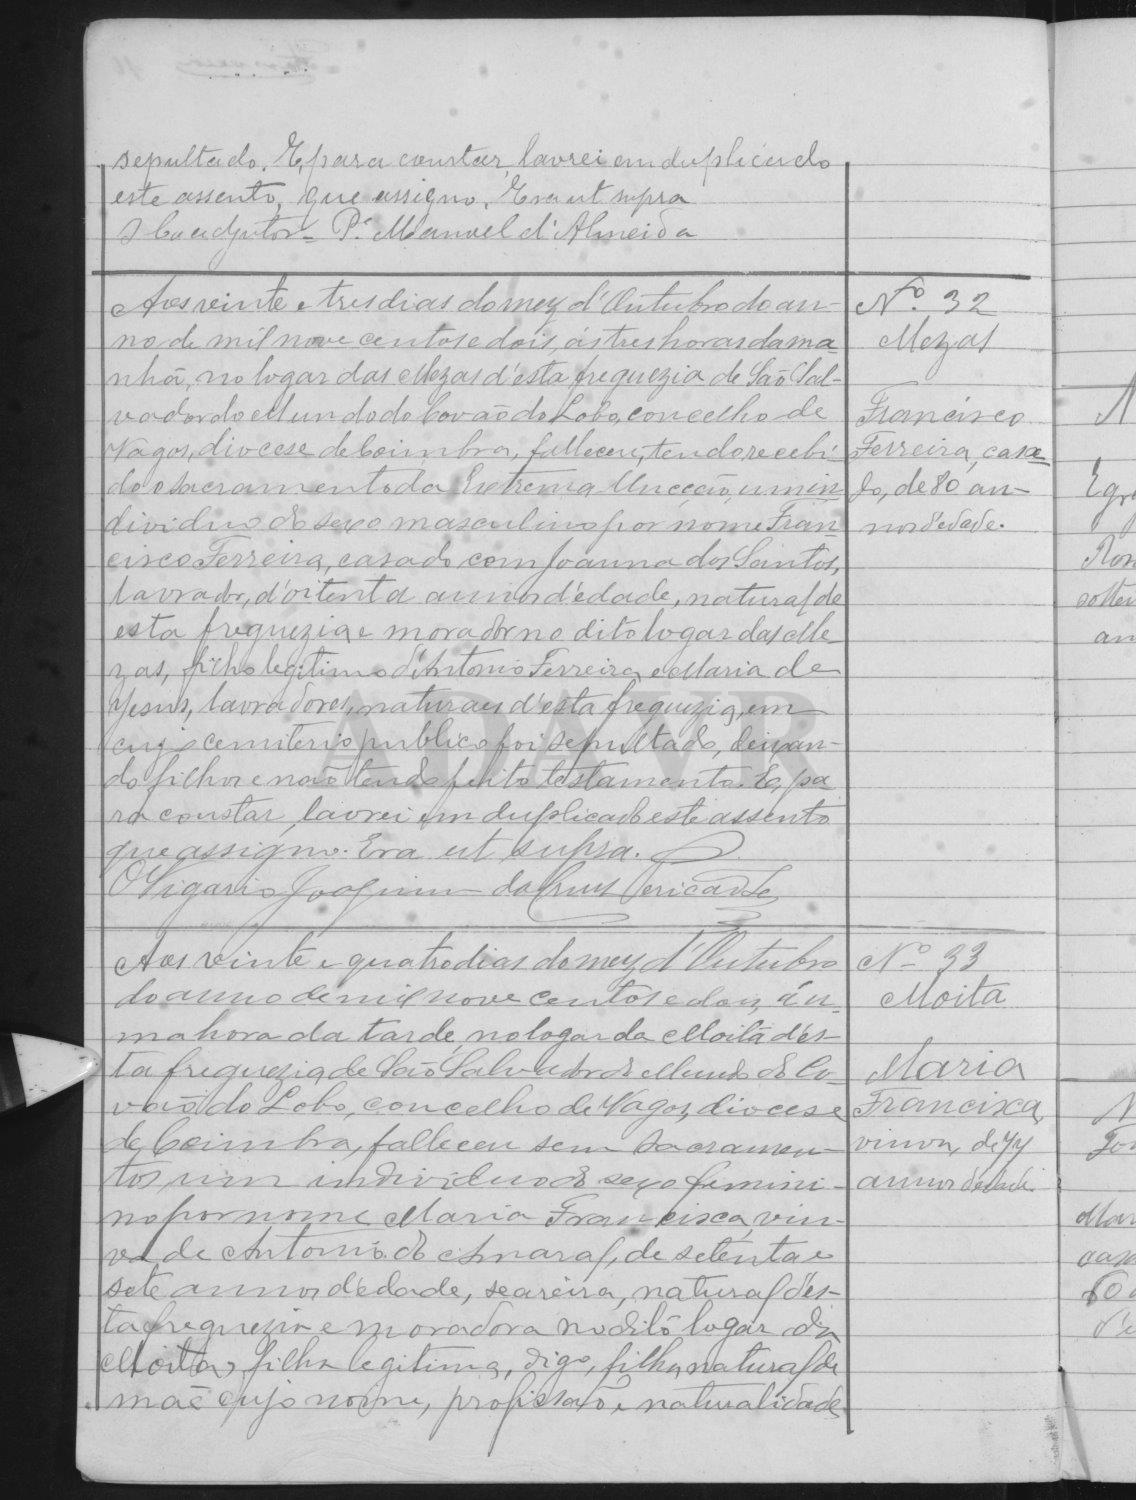 sepultado. E, para constar, lavrei em duplicado
este assento, que assigno. Era ut supra
O Coadjutor = P.e Manoel d'Almeida
Aos vinte e tres dias do mez d'Outubro do an-
no de mil nove centos e dois, ás tres horas da ma-
nhã, no logar das Mezas d'esta freguezia de São Sal-
vador do Mundo do Covão do Lobo, concelho de
Vagos, diocese de Coimbra, falleceu, tendo recebi-
do o sacramento da Extrema Uncção, um in-
dividuo do sexo masculino por nome Fran-
cisco Ferreira, casado com Joanna dos Santos,
lavrador, d'oitenta annos d'edade, natural de
esta freguezia e morador no dito logar das Me-
zas, filho legitimo d'Antonio Ferreira e Maria de
Jesus, lavradores, naturaes d'esta freguezia, em
cujo cemiterio publico foi sepultado, deixan-
do filhos e não tendo feito testamento. E, pa-
ra constar, lavrei em duplicado este assento
que assigno. Era ut supra.
O Vigario Joaquim da Cruz
Nº 32
Mezas
Francisco
Ferreira, casa-
do, de 80 an-
nos d'edade.
Aos vinte e quatro dias do mez d'Outubro
do anno de mil nove centos e dois, á u-
ma hora da tarde, no logar da Moita d'es-
ta freguezia de São Salvador do Mundo do Co-
vão do Lobo, concelho de Vagos, diocese
de Coimbra, falleceu sem sacramen-
tos um individuo do sexo femini-
no por nome Maria Francisca, viu-
va de Antonio do Amaral, de setenta e
sete annos d'edade, seareira, natural d'es-
ta freguezia e moradora no dito logar da
Moita, filha legitima, digo, filha natural de
mãe cujo nome, profissão e naturalidade
Nº 33
Moita
Maria
Francisca,
viuva, de 77
annos d'edade.
ADAVR